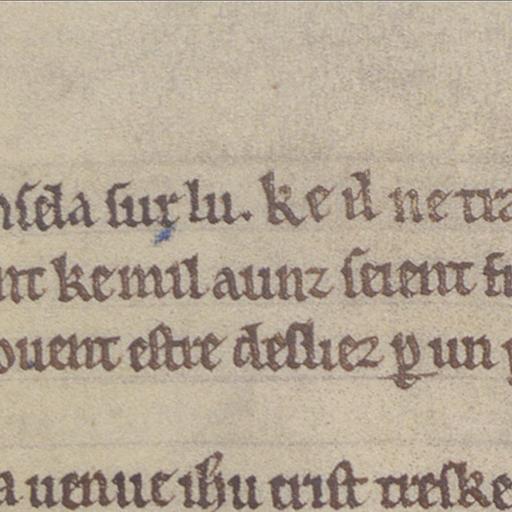 nsela sur lu. ke il ne tra
nt ke mil aunz seient fi
ouent estre desliez ꝑ un
a uenue ihu crist treske